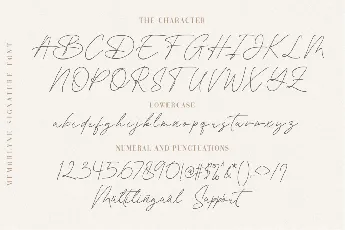 THE CHARACTER
ABCDEFGHIJKLM
NOPQRSTUVWXYZ
LOWERCASE
abcdefghijklmnopqrstuvwxyz
NUMERAL AND PUNCTUATIONS
Multilingual Support
SIGNATURE FONT